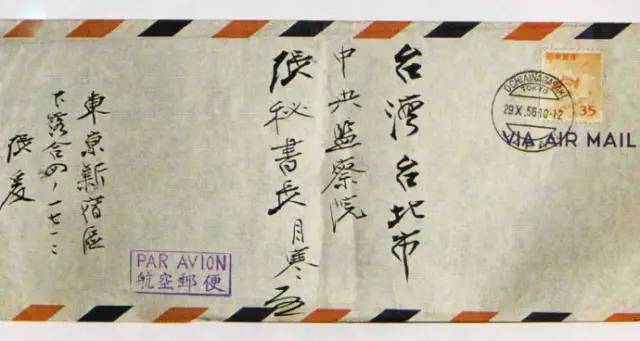 台灣台北市
中央監察院
張秘書長目寒
東京新宿區
下落合四ノ一七一二
張爰
OCHIAINAGASAKI
TOKYO
29.X.56.10-12
JAPAN
35
VIA AIR MAIL
PAR AVION
航空郵便